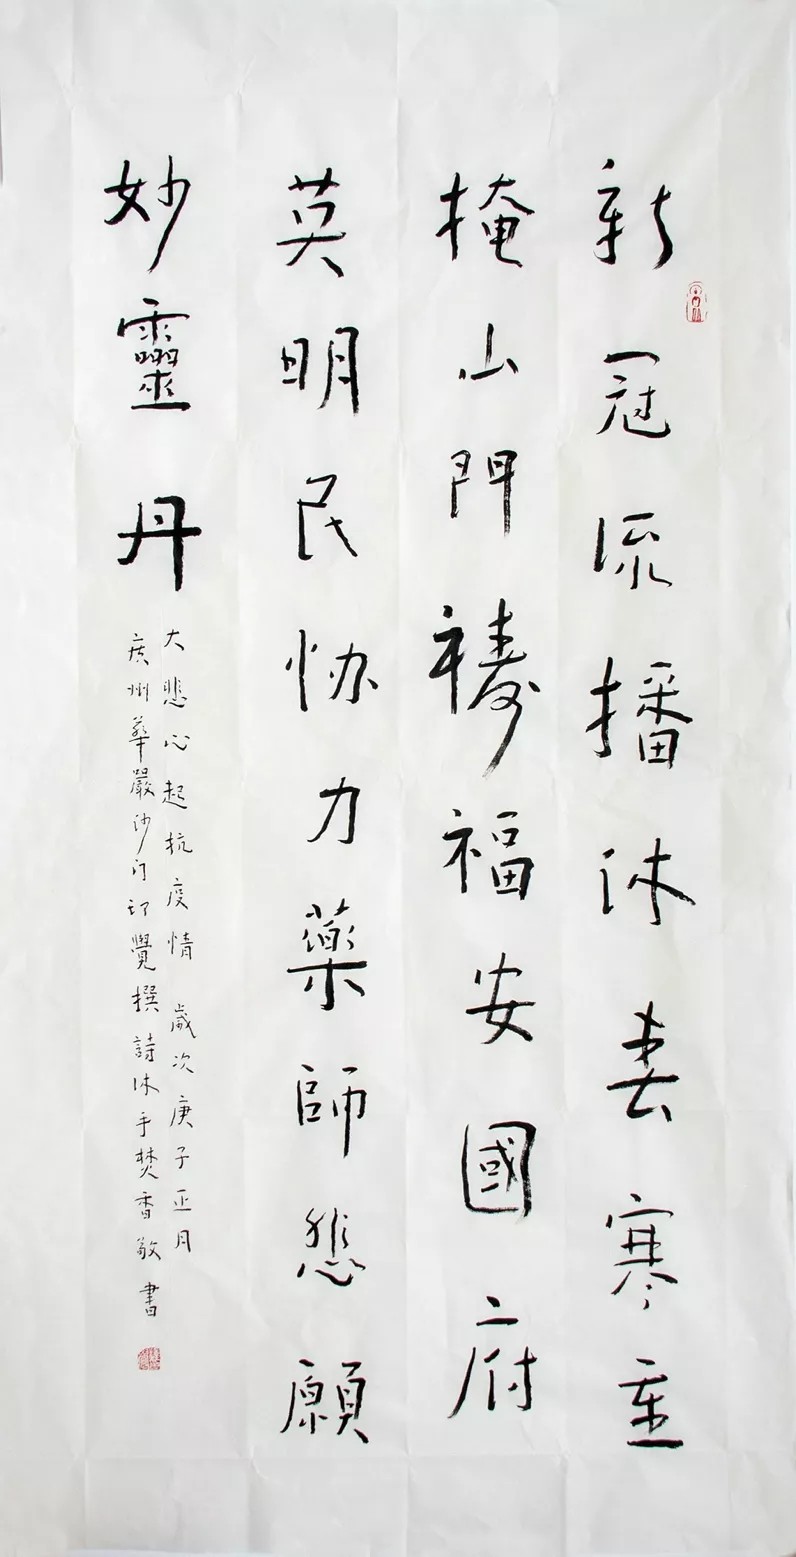 新冠流播沐春寒重
掩山門禱福安國府
英明民协力藥師悲願
妙靈丹
大悲心起抗疫情 歲次庚子正月
廣州華嚴沙门印覺撰詩沐手焚香敬書